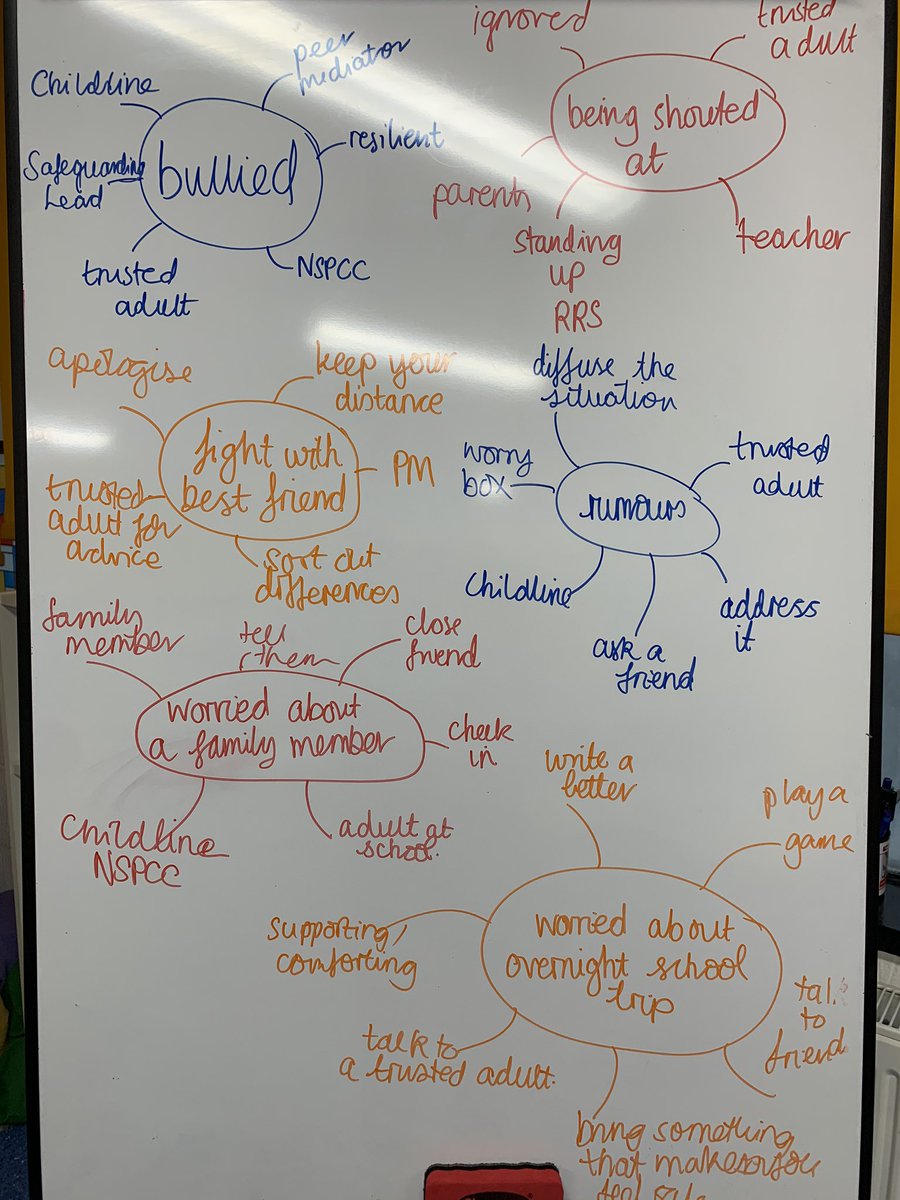 Childline
peer
mediator
resilient
Safeguarding
Lead
bullied
trusted
adult
NSPCC
ignored
trusted
adult
being shouted
at
parents
standing
up
RRS
teacher
apologise
keep your
distance
fight with
best friend
PM
trusted
adult for
advice
sort out
differences
diffuse the
situation
worry
box
trusted
adult
rumours
Childline
ask a
friend
address
it
family
member
tell
them
close
friend
worried about
a family member
check
in
Childline
NSPCC
adult at
school.
write a
better
play a
game
supporting/
comforting
worried about
overnight school
trip
talk to
a trusted adult.
to
friend
bring something
that makes you
feel safe